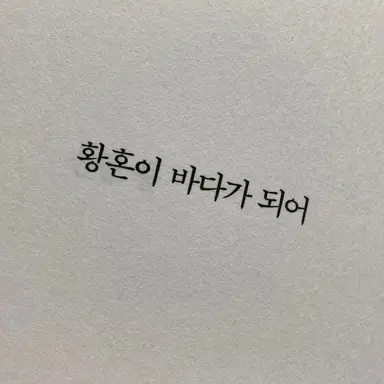 황혼이 바다가 되어